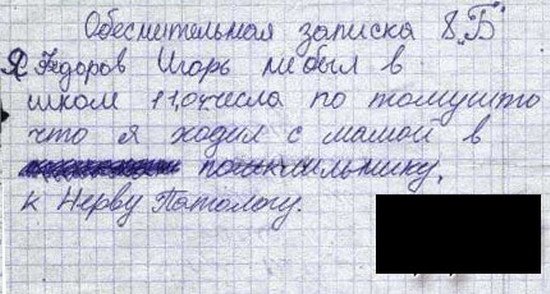 Обеснительная записка 8 „Б"
Я Федоров Игорь небыл в
школ 11,04 числа по томушто
что я ходил с мамой в
к Нерву Патологу.